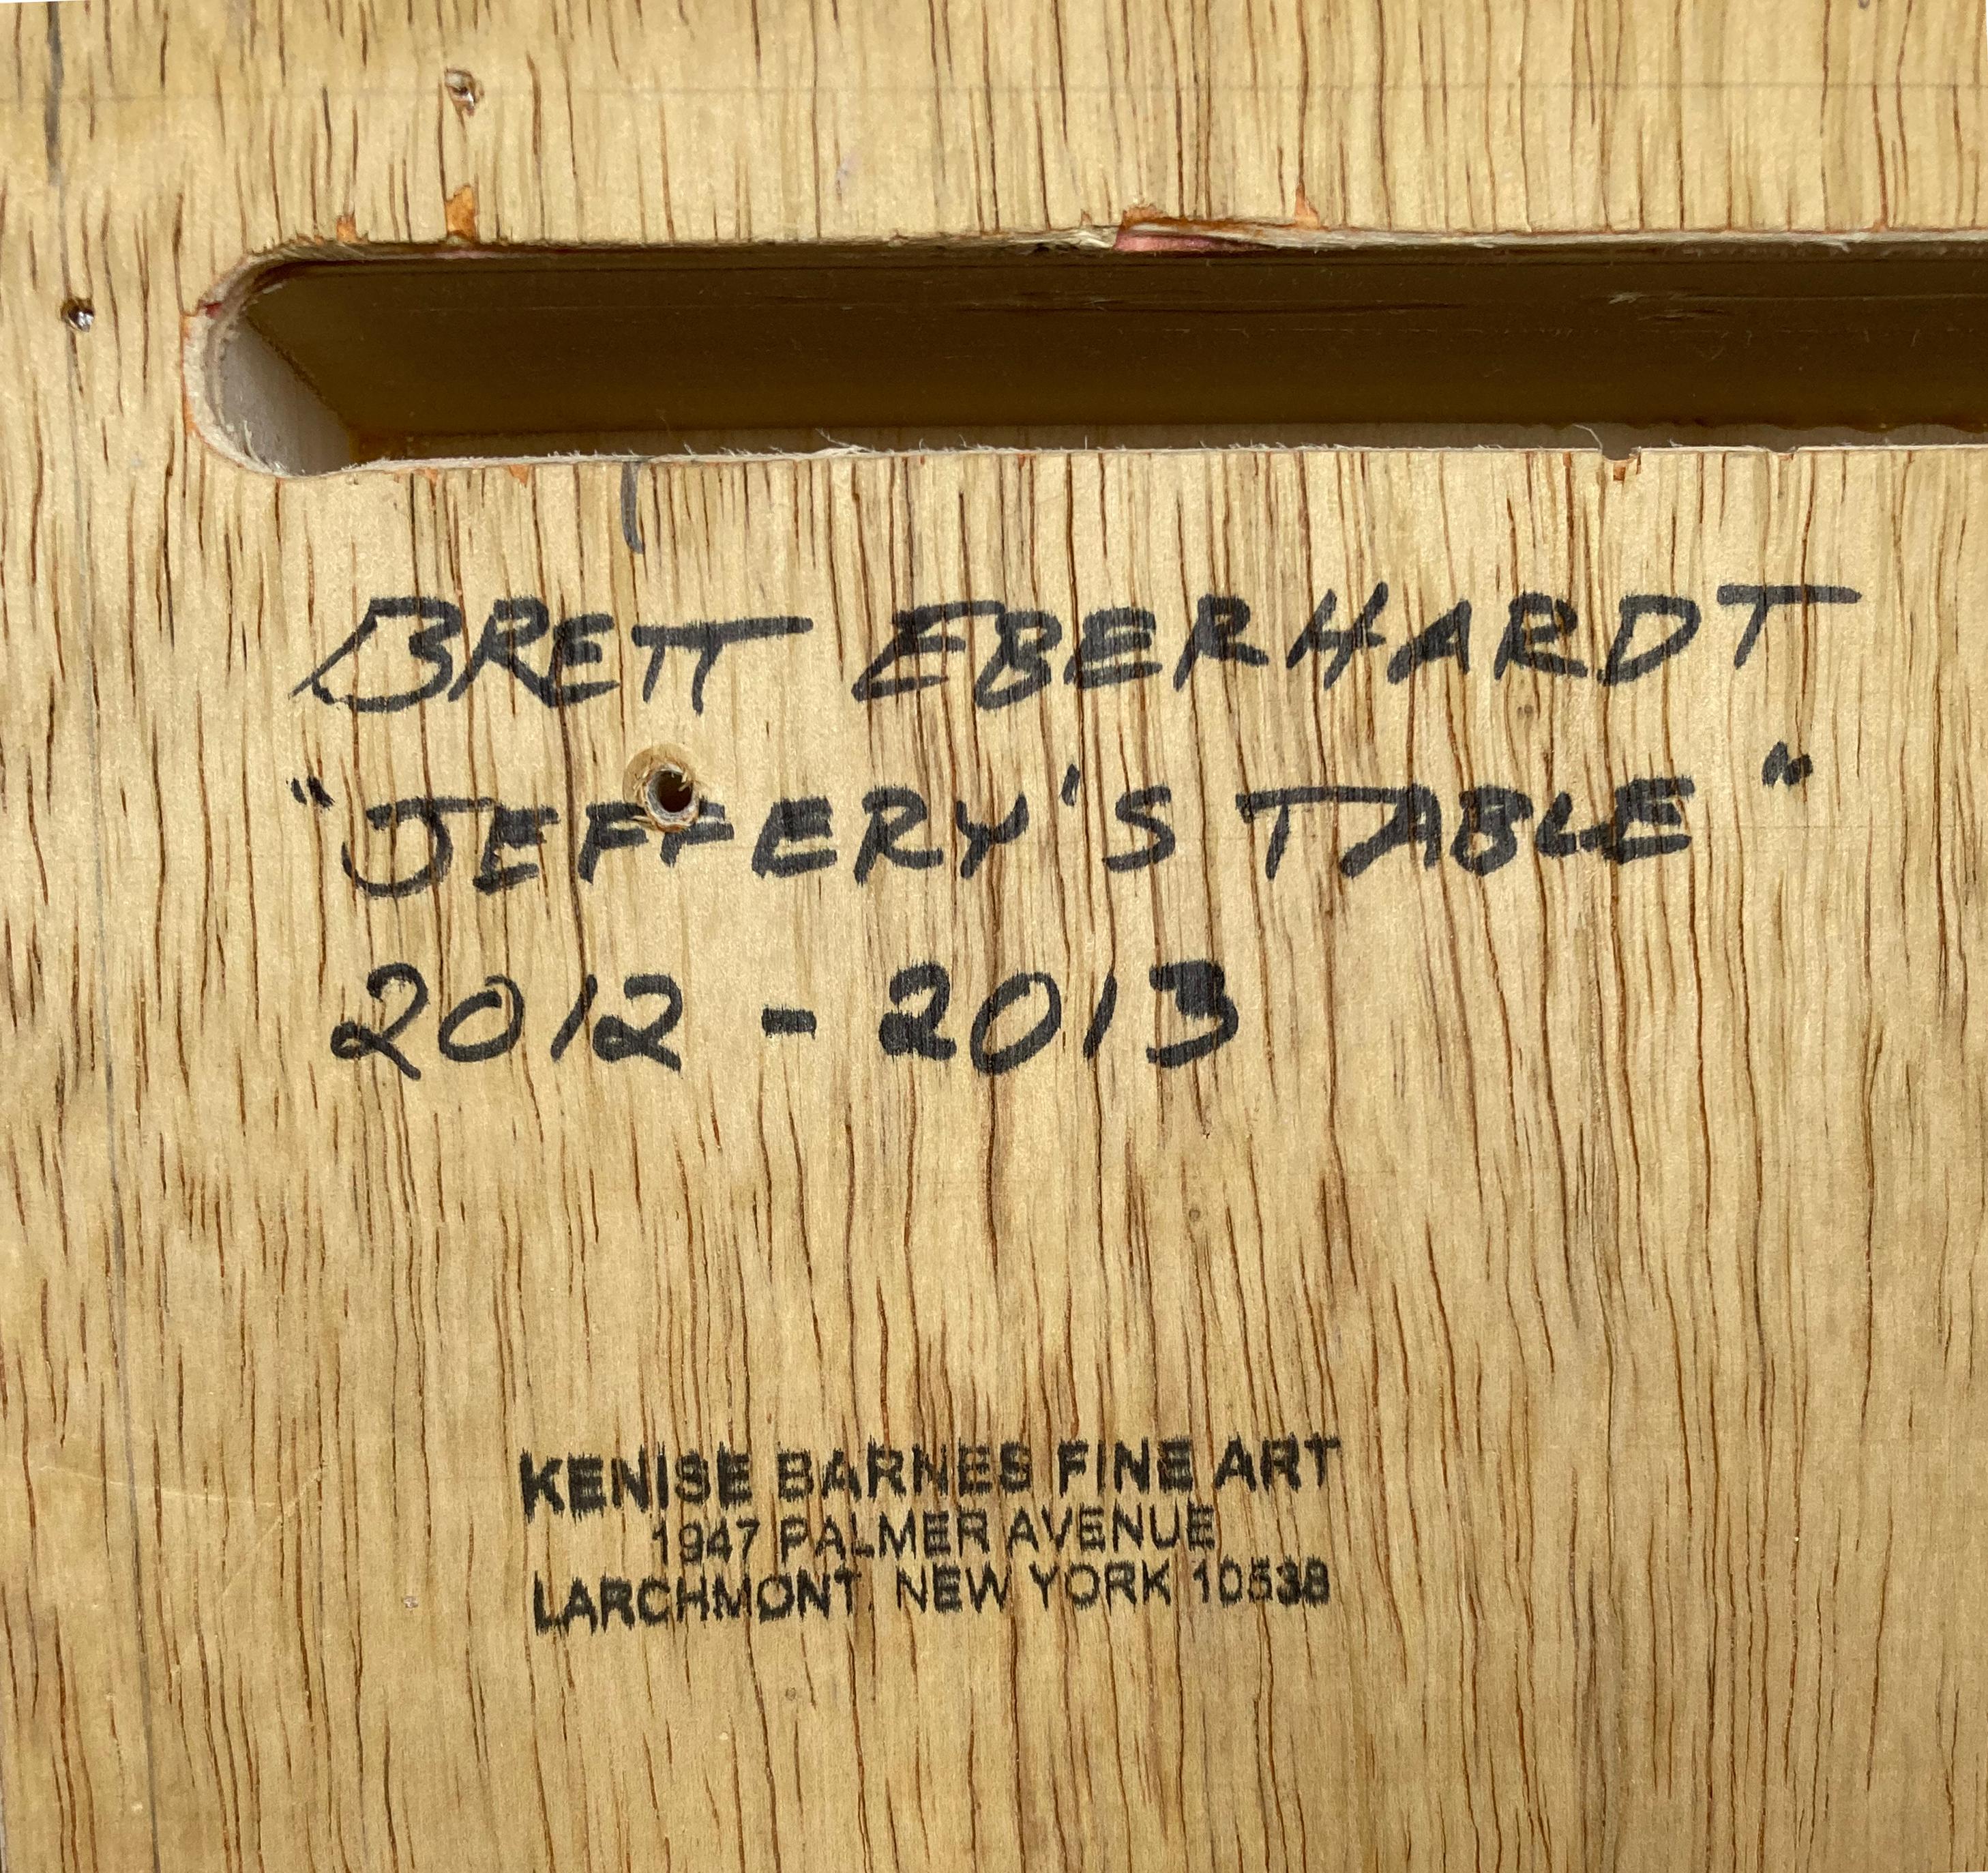 BRETT EBERHARDT
"JEFFERY'S TABLE"
2012 - 2013
KENISE BARNES FINE ART
1947 PALMER AVENUE
LARCHMONT, NEW YORK 10538